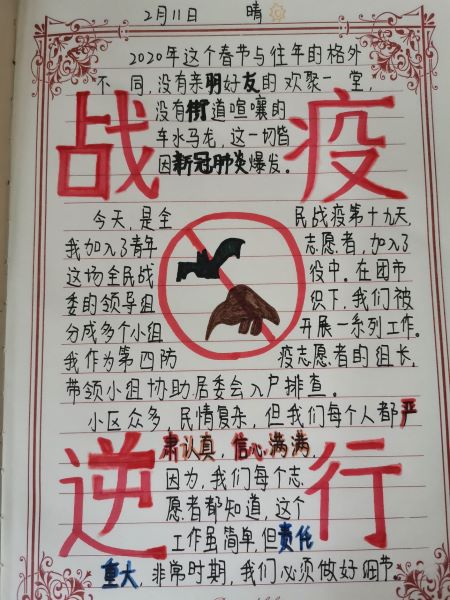 2月11日 晴
2020年这个春节与往年的格外
不同,没有亲朋好友的欢聚一堂,
没有街道喧嚷的
车水马龙,这一切皆
因新冠肺炎爆发。
战疫
今天,是全民战疫第十九天
我加入了青年志愿者,加入了
这场全民战役中。在团市
委的领导组织下,我们被
分成多个小组开展一系列工作。
我作为第四防疫志愿者的组长,
带领小组协助居委会入户排查。
小区众多,民情复杂,但我们每个人都严
肃认真,信心满满,
因为,我们每个志
愿者都知道,这个
工作虽简单,但责任
重大,非常时期,我们必须做好细节。
逆行